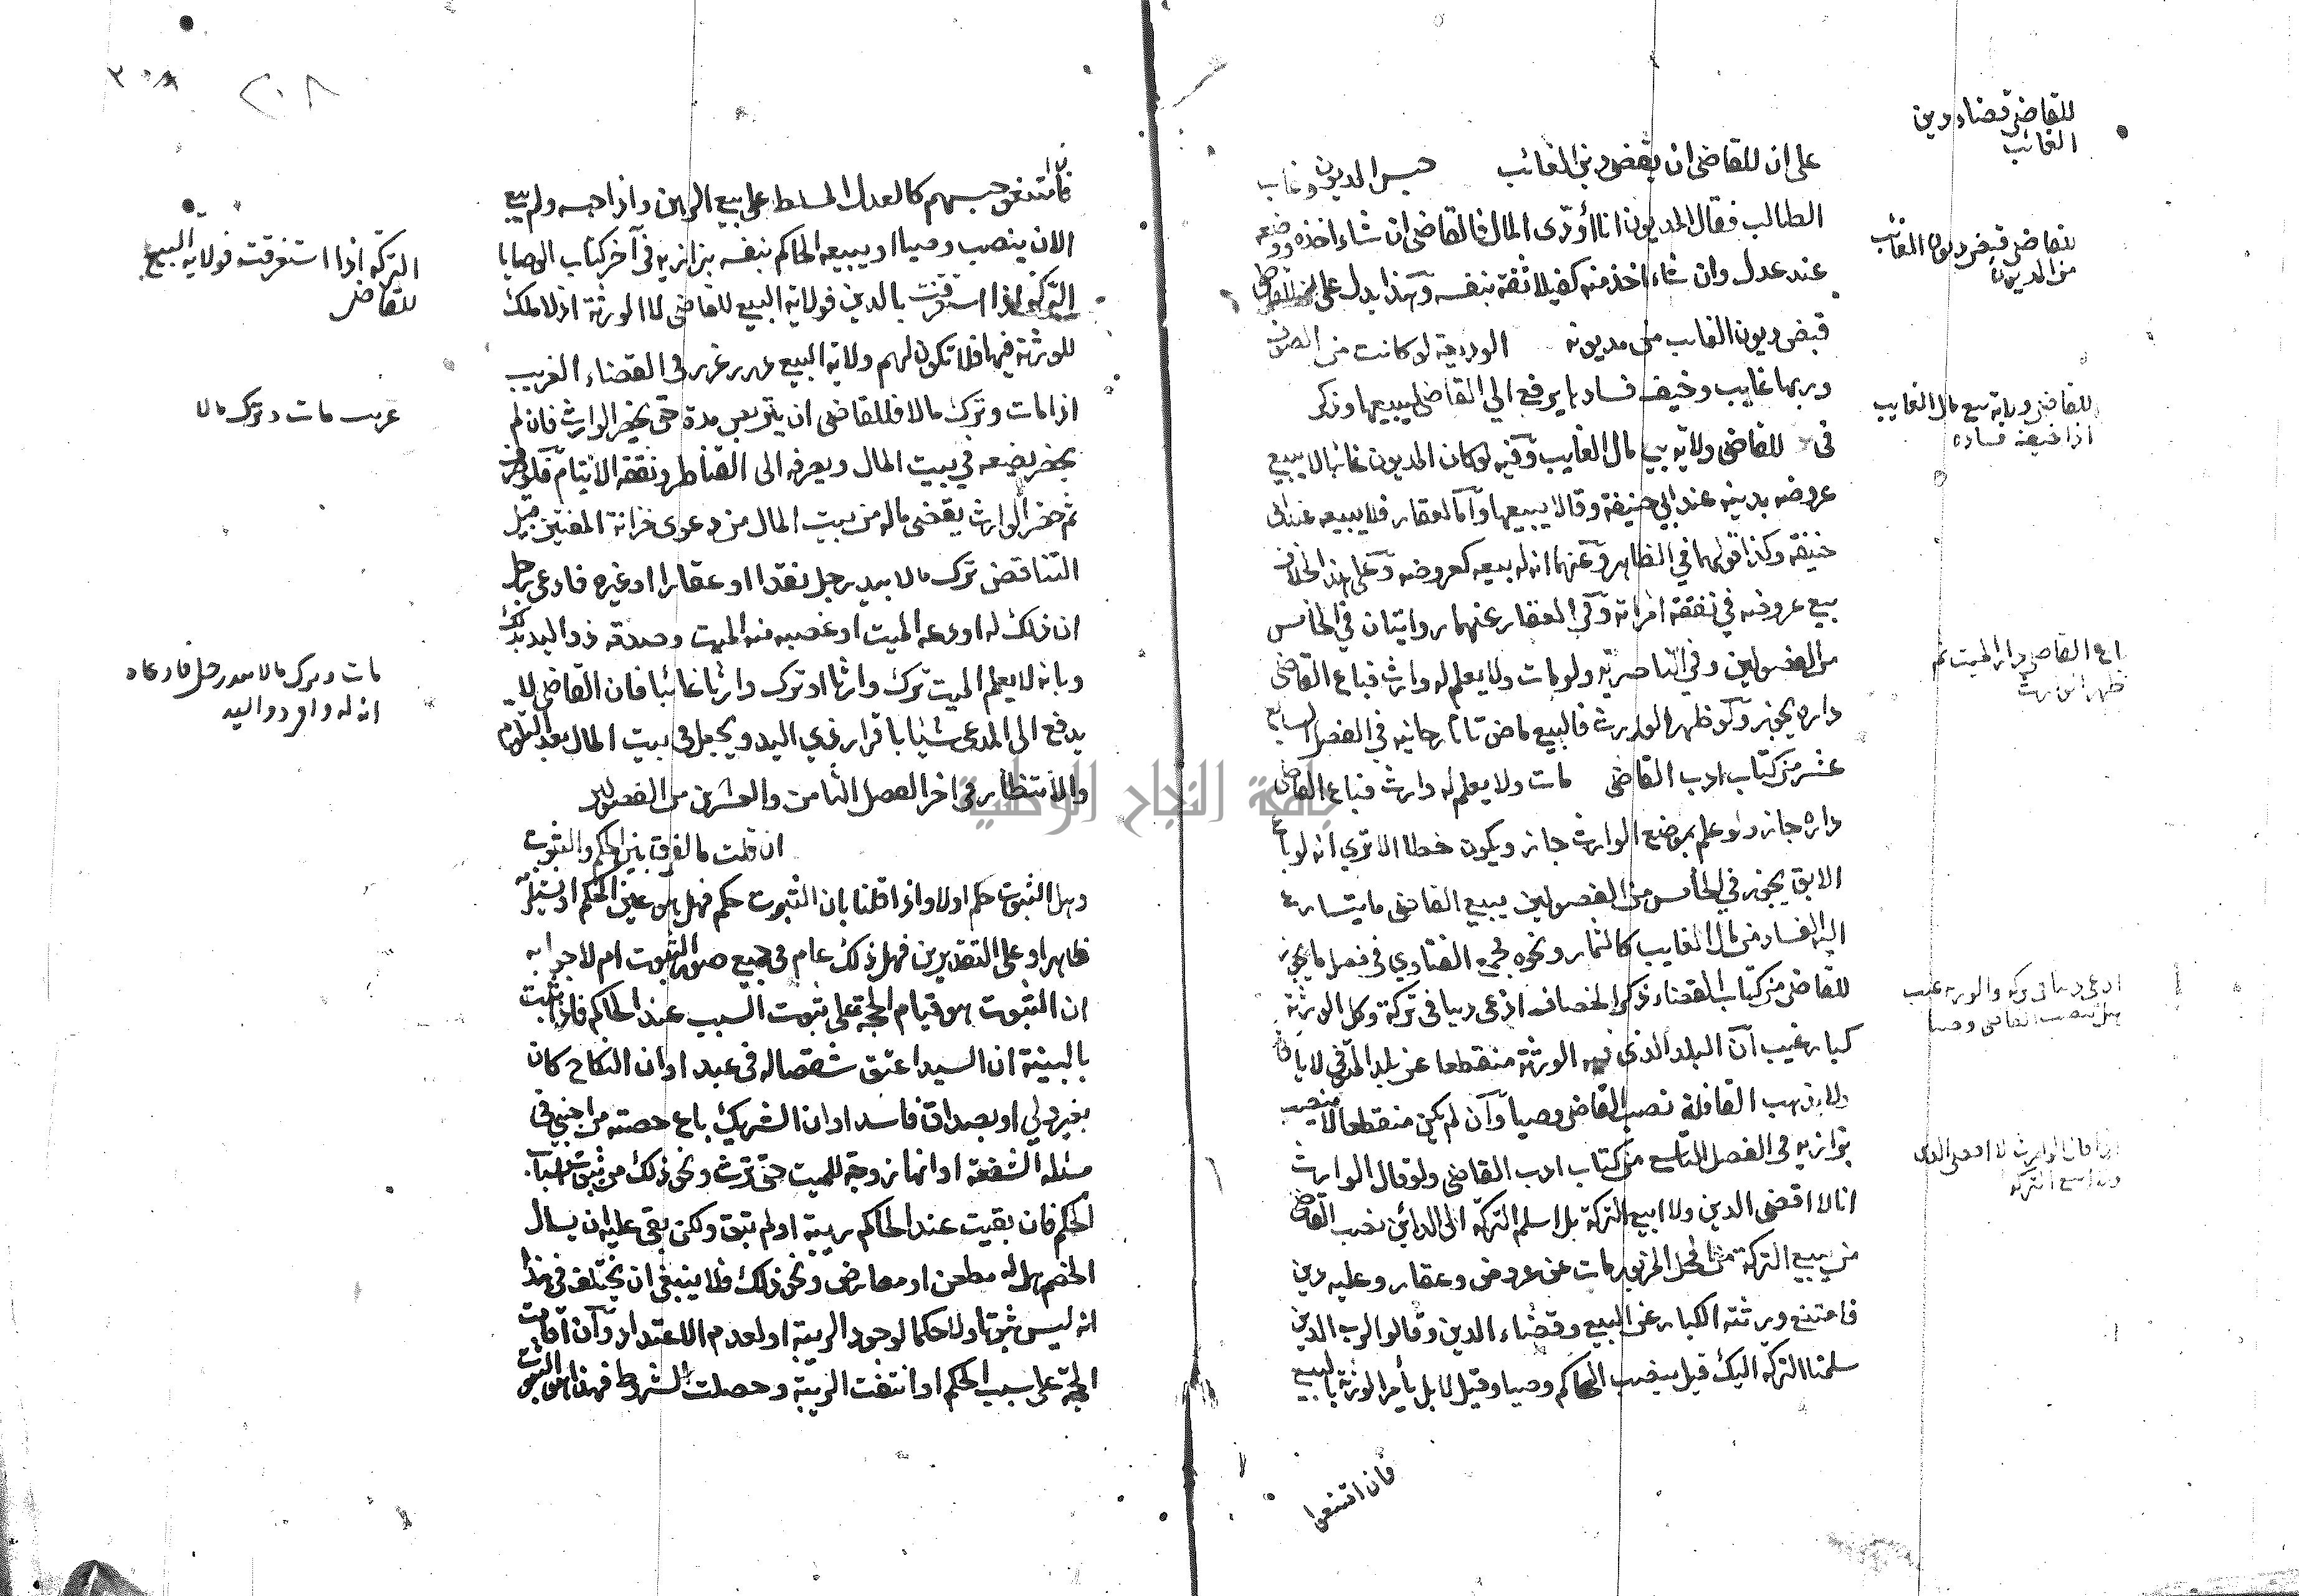 للقاضي قضاء دين
الغائب
على ان للقاضى ان يقضى دين الغائب حبس المديون وغاب
الطالب فقال المديون انا أؤدى المال فالقاضى ان شاء اخذه ووضعه
للقاضى قبض ديون الغائب
من المديون
عند عدل وان شاء اخذ منه كفيلا ثقة بنفسه وهذا يدل على ان للقاضى
قبض ديون الغايب من مديونه الوديعة لو كانت من الصوف
وربها غايب وخيف فسادها يرفع الى القاضى ليبيعها وذكر
للقاضى ولاية بيع مال الغايب
اذا خيف فساده
فى للقاضى ولاية بيع مال الغايب وفيه لو كان المديون غائبا لا يبيع
عروضه بدينه عند ابي حنيفة وقالا يبيعها واما العقار فلا يبيعه عند ابى
حنيفة وكذا قولهما في الظاهر وعنهما انه له بيعه كعروضه وعلى هذا الخلاف
بيع عروضه في نفقة امراته وفى العقار عنهما روايتان فى الخامس
باع القاضى دار الميت ثم
ظهر الوارث
من الفصولين وفي الناصرية ولو مات ولا يعلم له وارث فباع القاضى
داره يجوز ولو ظهر الوارث فالبيع ماض تاتارخانيه في الفصل السابع
عشر من كتاب ادب القاضى مات ولا يعلم له وارث فباع القاضى
داره جاز ولو علم بموضع الوارث جاز ويكون خطا الا ترى انه لو باع
الابق يجوز في الخامس من الفصولين يبيع القاضى ما يتسارع
اليه الفساد من مال الغايب كالثمار ونحوه مجمع الفتاوى فى فصل ما يجوز
ادعى دينا فى تركة والورثة غيب
هل ينصب القاضى وصيا
للقاضى من كتاب القضاء ذكر الخصاف ادعى دينا فى تركة وكل الورثة
كبار غيب ان البلد الذى فيه الورثة منقطعا عن بلد المتوفي لا ياتى
ولا يذهب القافلة نصب القاضى وصيا وان لم يكن منقطعا لا ينصب
اذا قال الوارث لا اقضى الدين
ولا ابيع التركة
بزازيه فى الفصل التاسع من كتاب ادب القاضى ولو قال الوارث
انا لا اقضى الدين ولا ابيع التركة بل اسلم التركة الى الدائن نصب القاضى
من يبيع التركة من المحل المزبور مات عن عروض وعقار وعليه دين
فامتنع ورثته الكبار عن البيع وقضاء الدين وقالوا لرب الدين
سلمنا التركة اليك قيل ينصب الحاكم وصيا وقيل لا بل يأمر الورثة بالبيع
فان امتنعوا
٢٠٨ ٢٠٨
فان امتنعوا حبسهم كالعدل المسلط على بيع الرهن واذا حبسه ولم يبيع
الان ينصب وصيا او يبيعه الحاكم بنفسه بزازيه فى آخر كتاب الوصايا
التركة اذا استغرقت فولاية البيع
للقاضى
التركة اذا استغرقت بالدين فولاية البيع للقاضى لا الورثة اذ لا ملك
للورثة فيها فلا تكون لهم ولاية البيع درر غرر فى القضاء الغريب
غريب مات وترك مالا
اذا مات وترك مالا فللقاضى ان يتربص مدة حتى يحضر الوارث فان لم
يحضر يضعه في بيت المال ويصرفه الى القناطر ونفقة الايتام فلو صرف
ثم حضر الوارث يقضى ماله من بيت المال من دعوى خزانة المفتين قبيل
التناقض ترك مالا بيد رجل نقدا او عقارا او غيره فادعى رجل
ان ذلك له اودعه الميت او غصبه منه الميت وصدقه ذو اليد بذلك
مات وترك مالا بيد رجل فادعاه
انه له واقر ذو اليد
وبانه لا يعلم الميت ترك وارثا او ترك وارثا غائبا فان القاضى لا
يدفع الى المدعى شيئا باقرار ذي اليد ويجعل فى بيت المال بعد التلوم
والانتظار فى اخر الفصل الثامن والعشرين من الفصولين
ان قلت ما الفرق بين الحكم والثبوت
وهل الثبوت حكم اولا واذا قلنا بان الثبوت حكم فهل هو عين الحكم او يستلزمه
ظاهرا وعلى التقديرين فهل ذلك عام فى جميع صور الثبوت ام لا جوابه
ان الثبوت هو قيام الحجة على ثبوت السبب عند الحاكم فاذا ثبت
بالبينة ان السيد اعتق شقصا له فى عبد او ان النكاح كان
بغير ولي او بصداق فاسد او ان الشريك باع حصته من اجنبي فى
مسئلة الشفعة او انها زوجة للميت حتى ترث ونحو ذلك من ثبوت اسباب
الحكم فان بقيت عند الحاكم ريبة او لم تبق ولكن بقى عليه ان يسال
الخصم هل له مطعن او معارض ونحو ذلك فلا ينبغى ان يختلف فى هذا
انه ليس ثبوتا ولا حكما لوجود الريبة او لعدم الاعتداد وان قامت
الحجة على سبب الحكم وانتفت الريبة وحصلت الشروط فهذا هو الثبوت
جامعة النجاح الوطنية